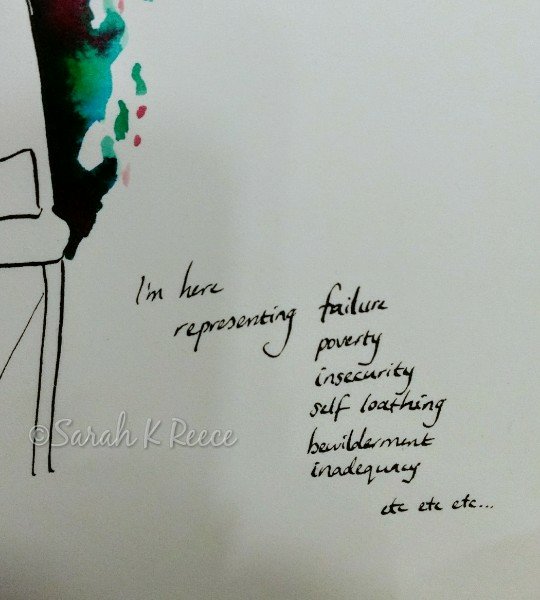 I'm here
representing
failure
poverty
insecurity
self loathing
bewilderment
inadequacy
etc etc etc...
©Sarah K Reece